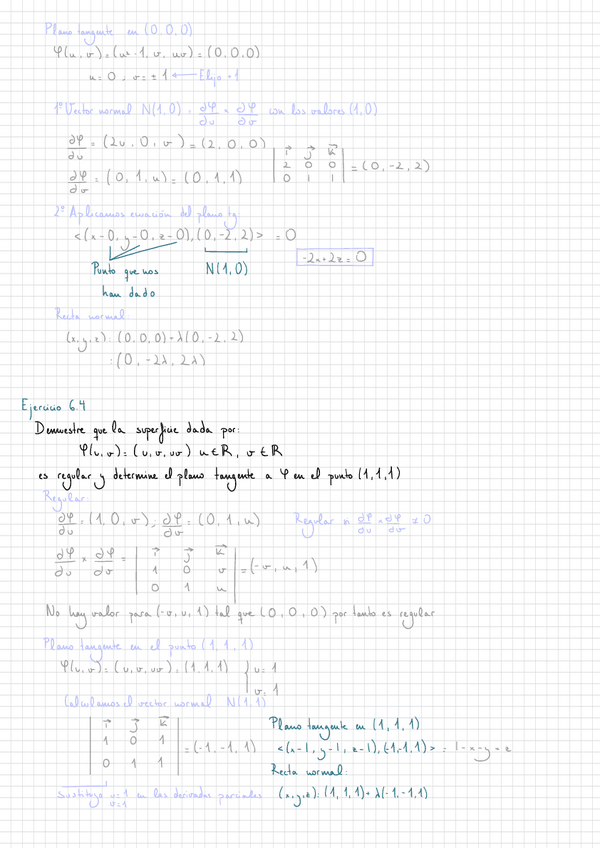 Plano tangente en (0,0,0)
φ(u,v)=(u²-1, v, uv)=(0,0,0)
u=0, v=±1 ← Elijo +1
1º Vector normal N(1,0) = ∂φ/∂u × ∂φ/∂v con los valores (1,0)
∂φ/∂u = (2u, 0, v) = (2,0,0)
∂φ/∂v = (0,1,u) = (0,1,1)
| i j k |
| 2 0 0 | = (0,-2,2)
| 0 1 1 |
2º Aplicamos ecuación del plano tg:
<(x-0, y-0, z-0), (0,-2,2)> = 0
Punto que nos
han dado
N(1,0)
-2x+2z=0
Recta normal:
(x,y,z): (0,0,0)+λ(0,-2,2)
: (0, -2λ, 2λ)
Ejercicio 6.4
Demuestre que la superficie dada por:
φ(u,v)=(u,v,uv) u∈R, v∈R
es regular y determine el plano tangente a φ en el punto (1,1,1)
Regular:
∂φ/∂u = (1,0,v), ∂φ/∂v = (0,1,u)
Regular si ∂φ/∂u × ∂φ/∂v ≠ 0
∂φ/∂u × ∂φ/∂v =
| i j k |
| 1 0 v | = (-v, u, 1)
| 0 1 u |
No hay valor para (-v,u,1) tal que (0,0,0) por tanto es regular
Plano tangente en el punto (1,1,1)
φ(u,v)=(u,v,uv)=(1,1,1) { u=1
v=1
Calculamos el vector normal N(1,1)
| i j k |
| 1 0 1 | = (-1,-1,1)
| 0 1 1 |
Sustituyo u=1 v=1 en las derivadas parciales
Plano tangente en (1,1,1)
<(x-1, y-1, z-1), (-1,-1,1)> = 1-x-y+z
Recta normal:
(x,y,z): (1,1,1)+λ(-1,-1,1)